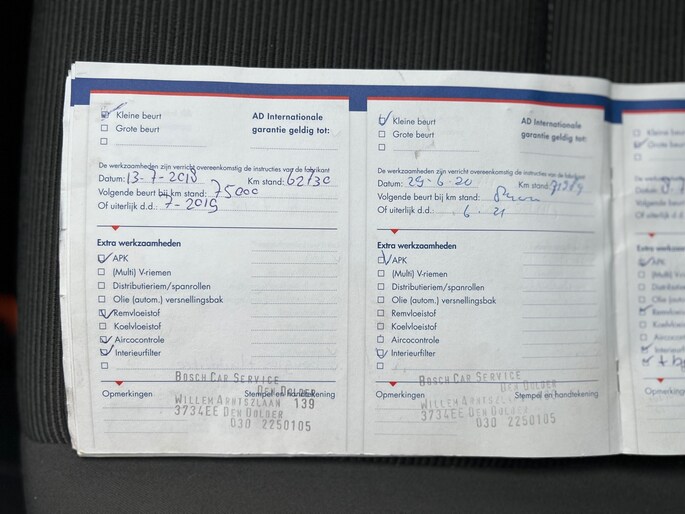 Kleine beurt
Grote beurt
AD Internationale
garantie geldig tot:
De werkzaamheden zijn verricht overeenkomstig de instructies van de fabrikant
Datum: 13-7-2018 Km stand: 62730
Volgende beurt bij km stand: 75000
Of uiterlijk d.d. 7-2019
Extra werkzaamheden
APK
(Multi) V-riemen
Distributieriem/spanrollen
Olie (autom.) versnellingsbak
Remvloeistof
Koelvloeistof
Aircocontrole
Interieurfilter
Opmerkingen Stempel en handtekening
Bosch Car Service
Den Dolder
Willem Arntszlaan 139
3734EE Den Dolder
030 2250105
Kleine beurt
Grote beurt
AD Internationale
garantie geldig tot:
De werkzaamheden zijn verricht overeenkomstig de instructies van de fabrikant
Datum: 29-6-20 Km stand:
Volgende beurt bij km stand:
Of uiterlijk d.d. 6-21
Extra werkzaamheden
APK
(Multi) V-riemen
Distributieriem/spanrollen
Olie (autom.) versnellingsbak
Remvloeistof
Koelvloeistof
Aircocontrole
Interieurfilter
Opmerkingen Stempel en handtekening
Bosch Car Service
Den Dolder
Willem Arntszlaan
3734EE Den Dolder
030 2250105
Kleine beurt
Grote beurt
De werkzaamheden zijn
Datum:
Volgende beurt
Of uiterlijk d.d.
Extra werkzaam
APK
(Multi) V-riem
Distributierie
Olie (autom.)
Remvloeistof
Koelvloeistof
Aircocontrole
Interieurfilter
Opmerkingen